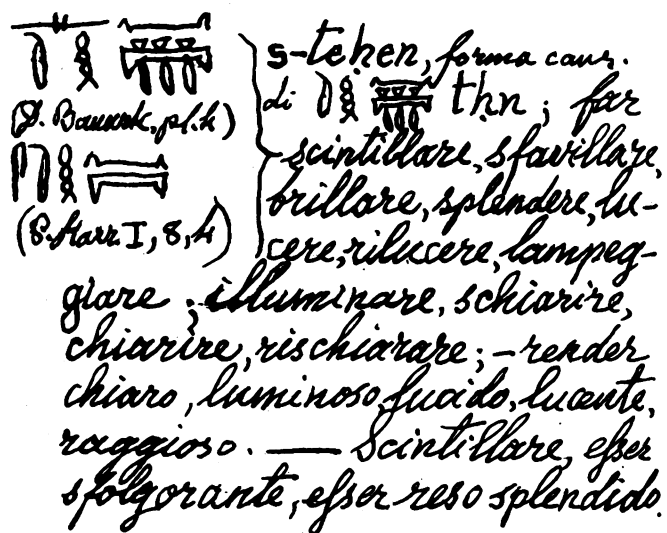 s-tehen, forma caus.
di thn; far
scintillare, sfavillare,
(D. Bauurk, pl. k)
brillare, splendere, lu-
cere, rilucere, lampeg-
(P. Harr. I, 8, 4)
giare; illuminare, schiarire,
chiarire, rischiarare; – render
chiaro, luminoso, fucido, lucente,
raggioso. — Scintillare, eſser
sfolgorante, eſser reso splendido.